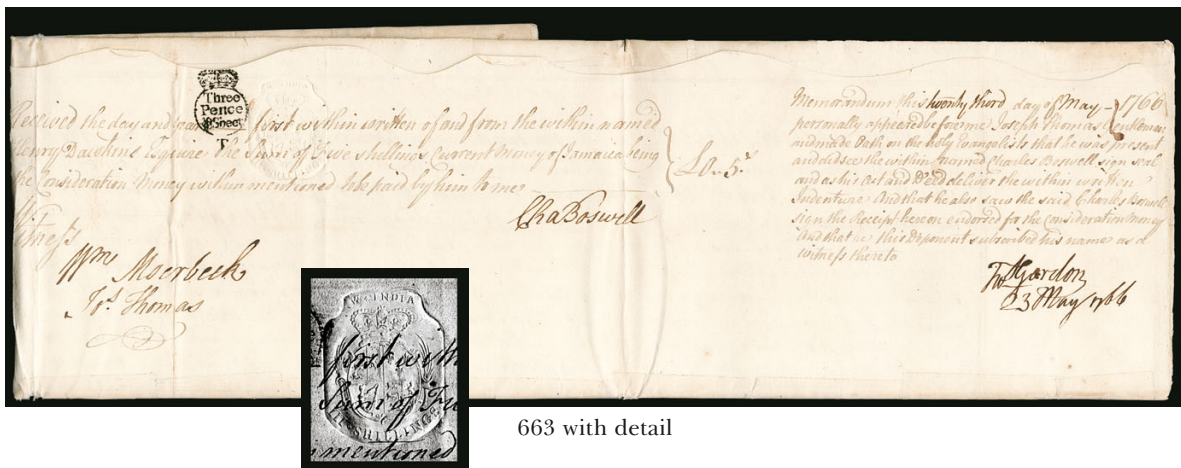 Three
Pence
T
Received the day and year first within written of and from the within named
Henry Dawkins Esquire the Sum of Five shillings Current Money of Jamaica being
the Consideration Money within mentioned to be paid by him to me
£0..5.s
Cha Boswell
Witness
Wm Moerbeck
Jos. Thomas
Memorandum this twenty third day of May - 1766
personally appeared before me Joseph Thomas Gentleman
and made Oath on the holy Evangelists that he was present
and did see the within named Charles Boswell sign seal
and as his Act and Deed deliver the within written
Indenture And that he also saw the said Charles Boswell
sign the Receipt hereon endorsed for the Consideration Money
And that he this Deponent subscribed his name as a
witness thereto
Gordon
23 May 1766
W. INDIA
first with
Sum of
SHILLINGS
mentioned
663 with detail